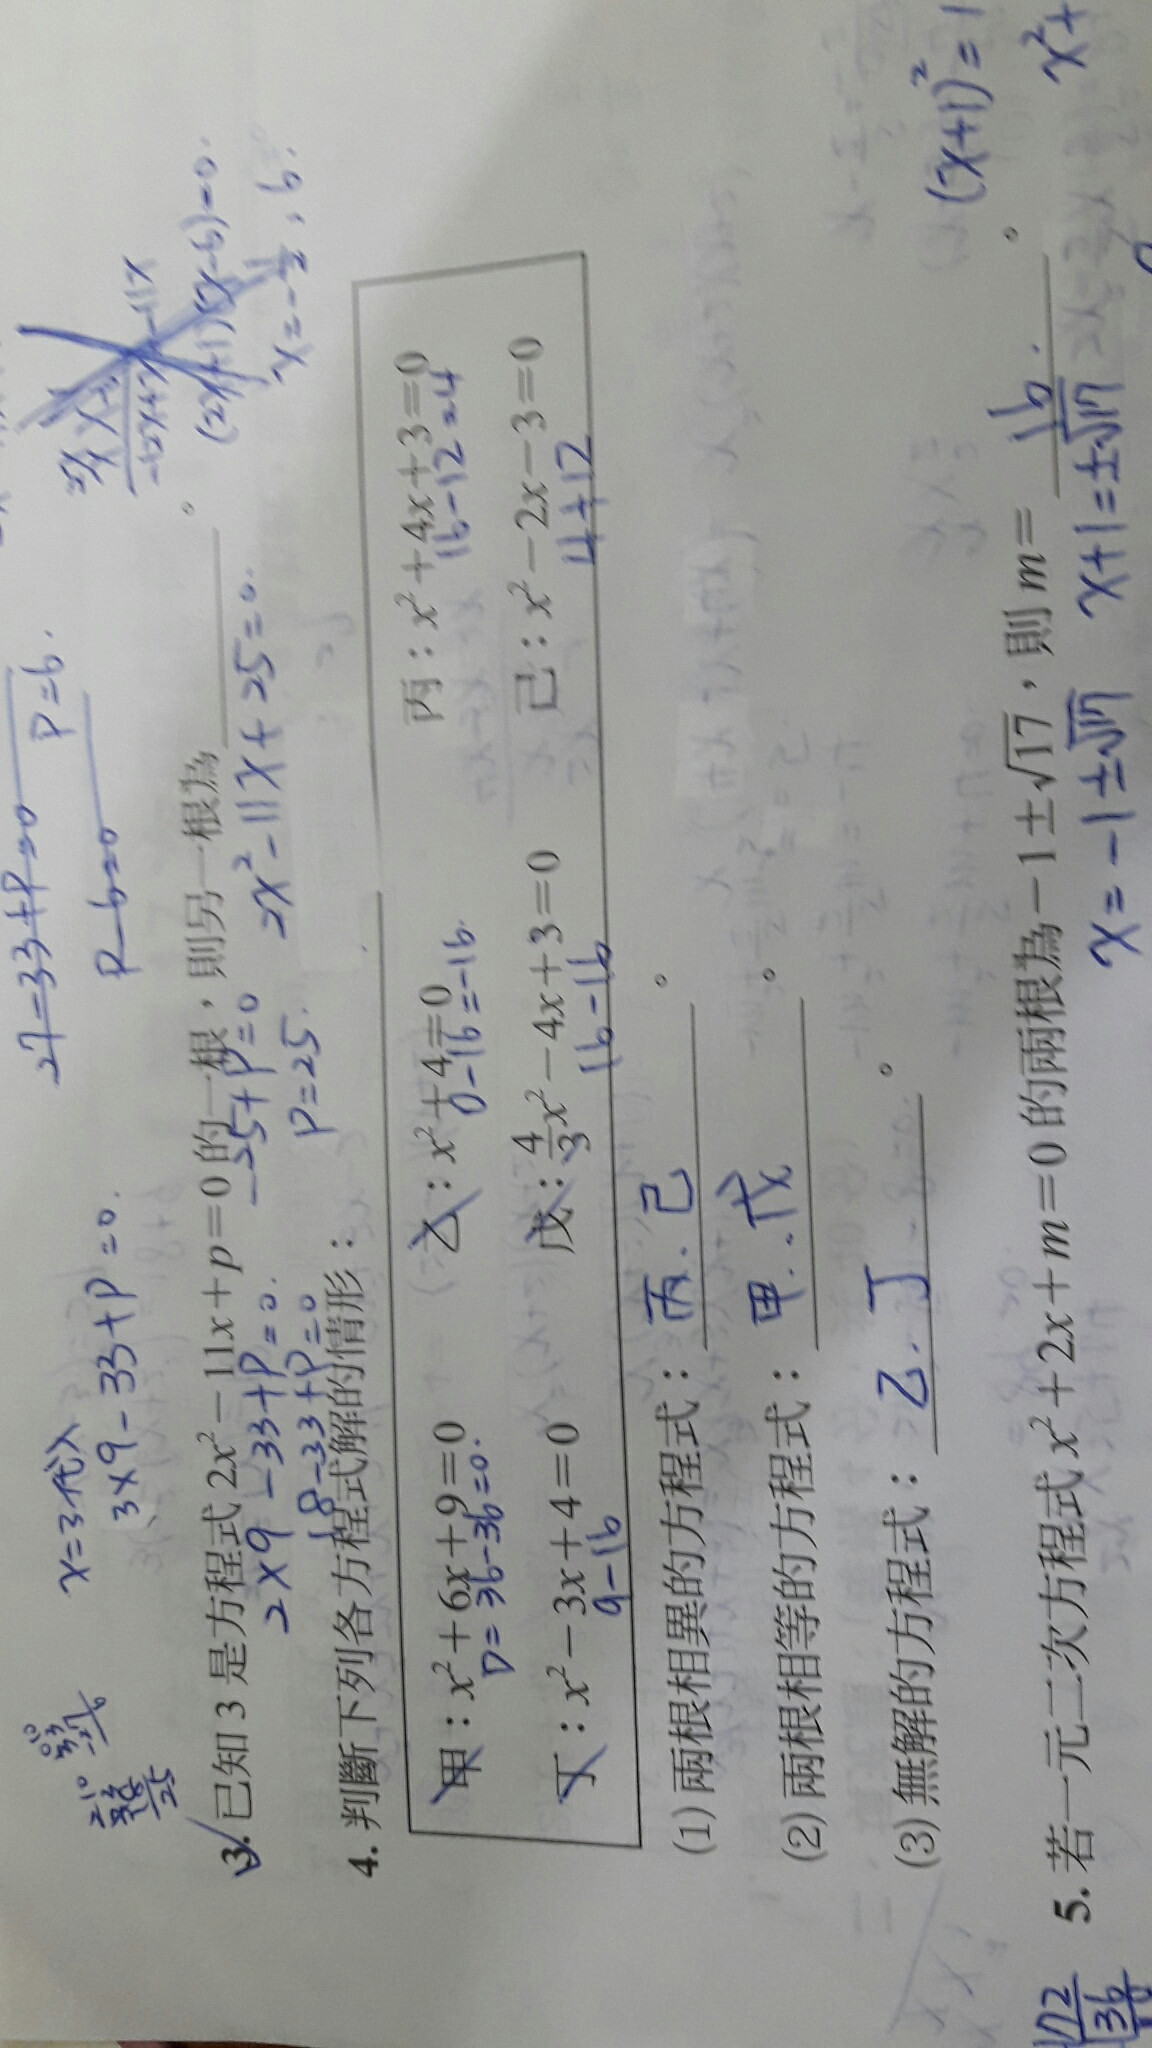 27-33+P=0
P=6.
P-6=0
x=3代入
3×9-33+P=0.
(2x+1)(x-6)=0.
x=-1/2, 6.
3. 已知 3 是方程式 2x²-11x+p=0 的一根，則另一根為 ______ 。
2×9-33+P=0.
-25+P=0
2x²-11x+25=0.
18-33+P=0
P=25.
4. 判斷下列各方程式解的情形：
甲：x²+6x+9=0 乙：x²+4=0 丙：x²+4x+3=0
D=36-36=0. 0-16=-16. 16-12=4
丁：x²-3x+4=0 戊：4/3x²-4x+3=0 己：x²-2x-3=0
9-16 16-16 4+12
(1) 兩根相異的方程式：丙.己。
(2) 兩根相等的方程式：甲.戊。
(3) 無解的方程式：乙.丁。
(x+1)²=1
5. 若一元二次方程式 x²+2x+m=0 的兩根為 -1±√17，則 m= 16. 。
x²+
x=-1±√17 x+1=±√17
72
36